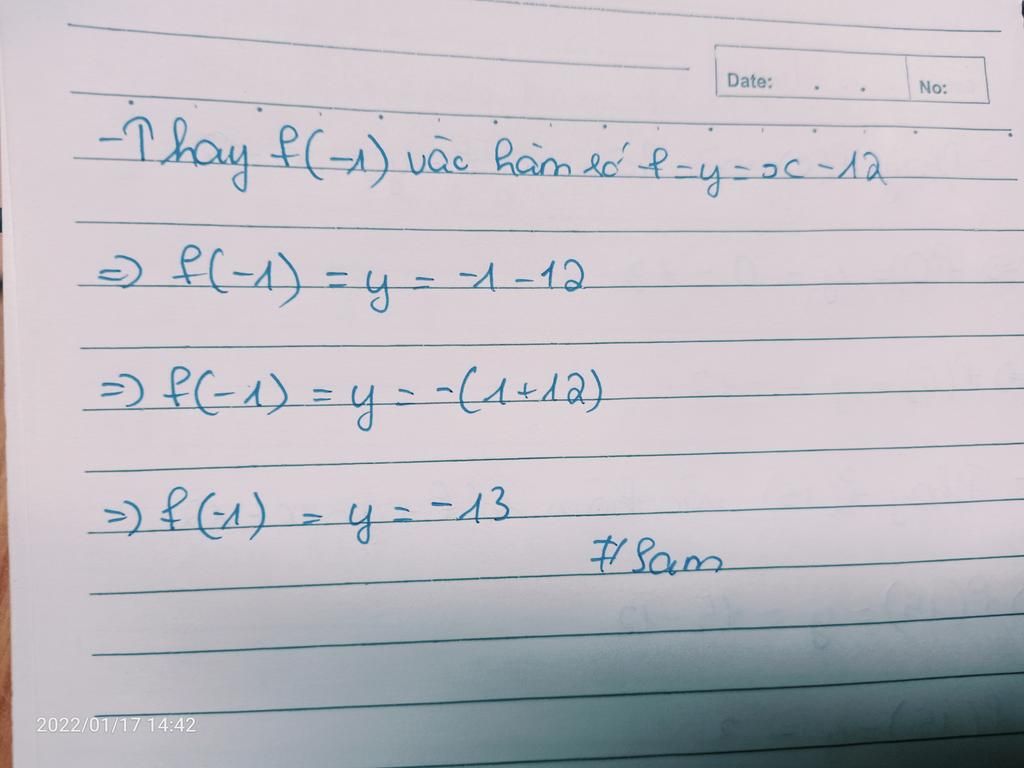 Date: . . No:
-Thay f(-1) vào hàm số f=y=x-12
=> f(-1) = y = -1-12
=> f(-1) = y = -(1+12)
=> f(-1) = y = -13
#Sam
2022/01/17 14:42